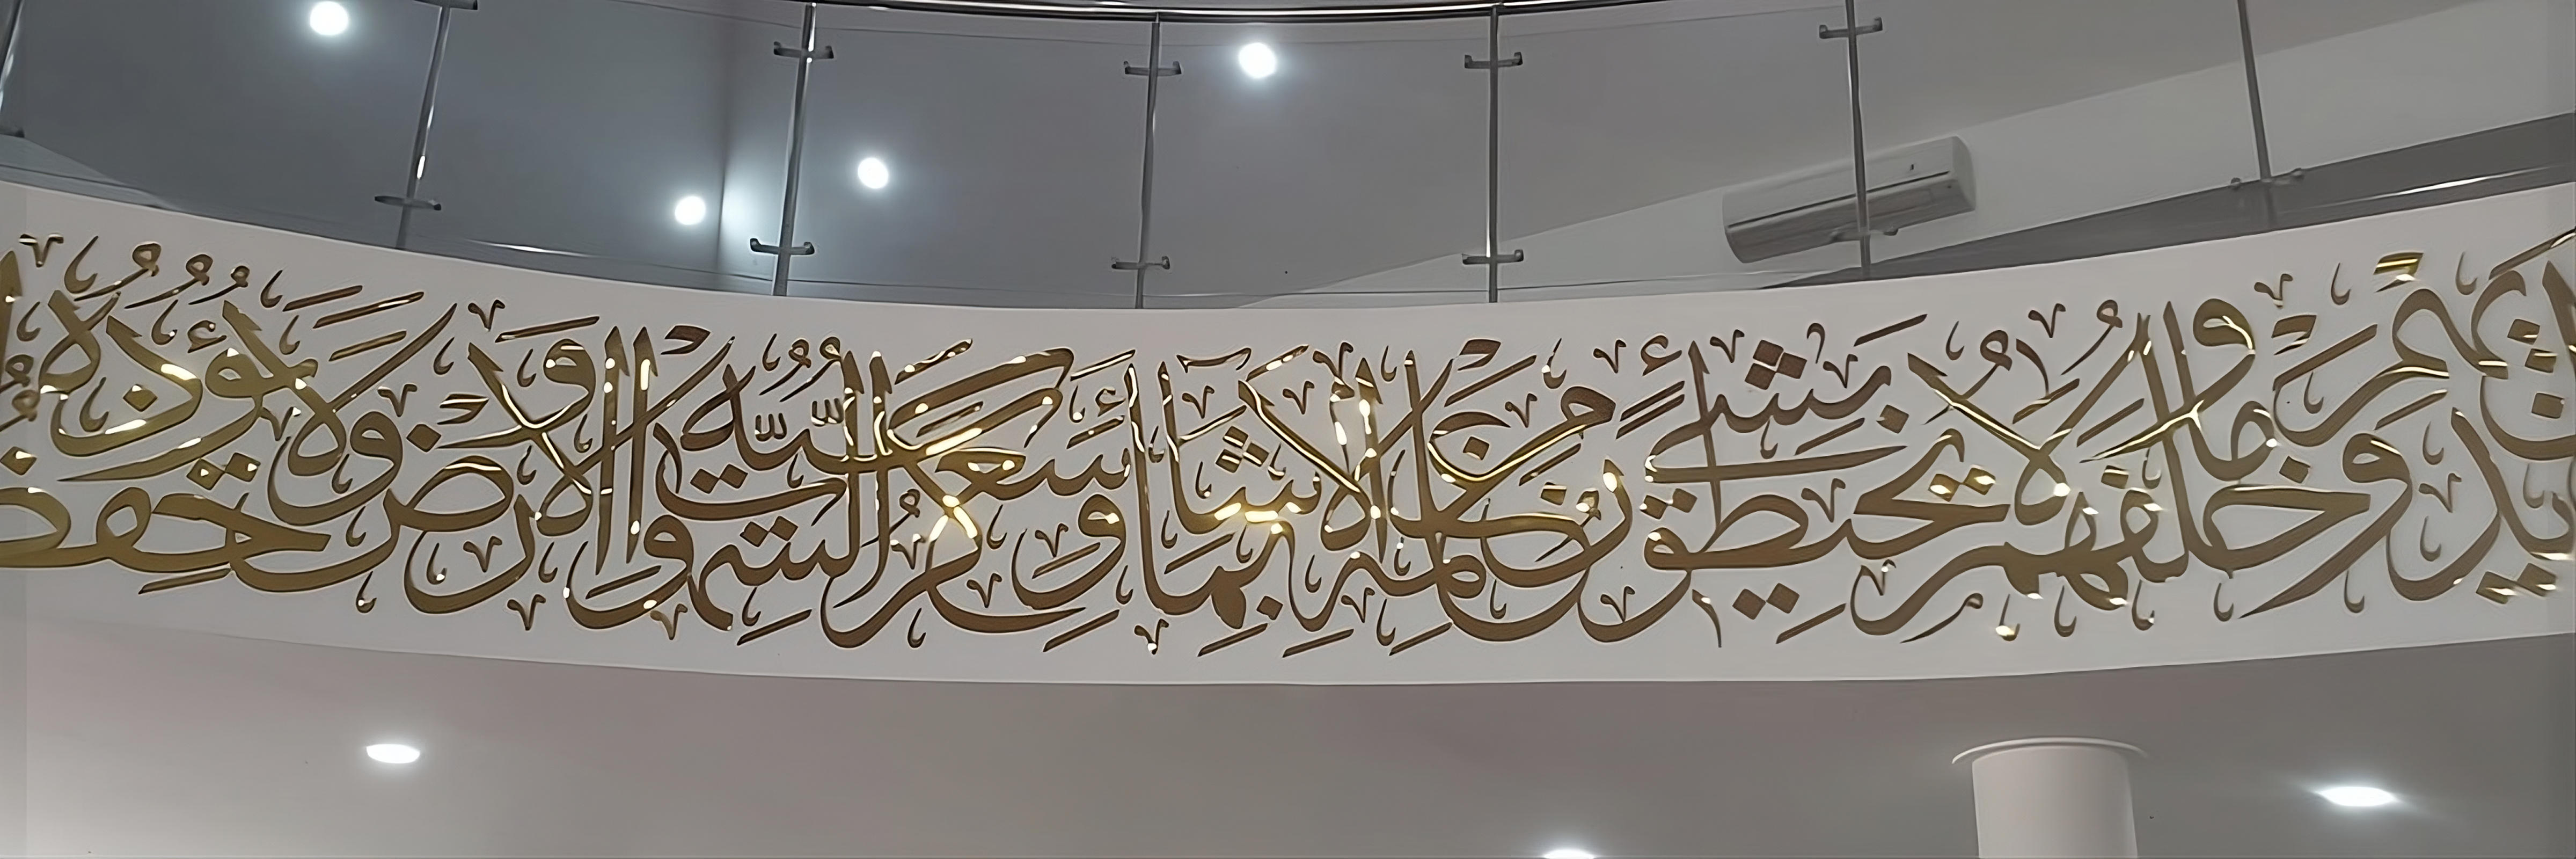 أَيْدِيهِمْ وَمَا خَلْفَهُمْ وَلَا يُحِيطُونَ بِشَيْءٍ مِنْ عِلْمِهِ إِلَّا بِمَا شَاءَ وَسِعَ كُرْسِيُّهُ السَّمَوَاتِ وَالْأَرْضَ وَلَا يَئُودُهُ حِفْظُ